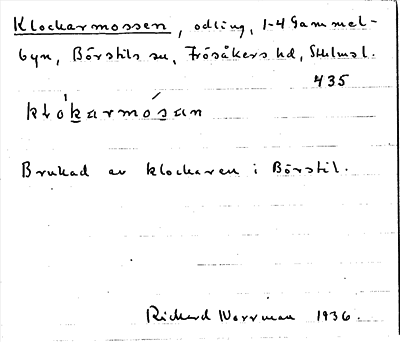 Klockarmossen, odling, 1-4 Gammel-
byn, Börstils sn, Frösåkers hd, Sthlms l.
435
klókarmósan
Brukad av klockaren i Börstil.
Richard Norrman 1936.